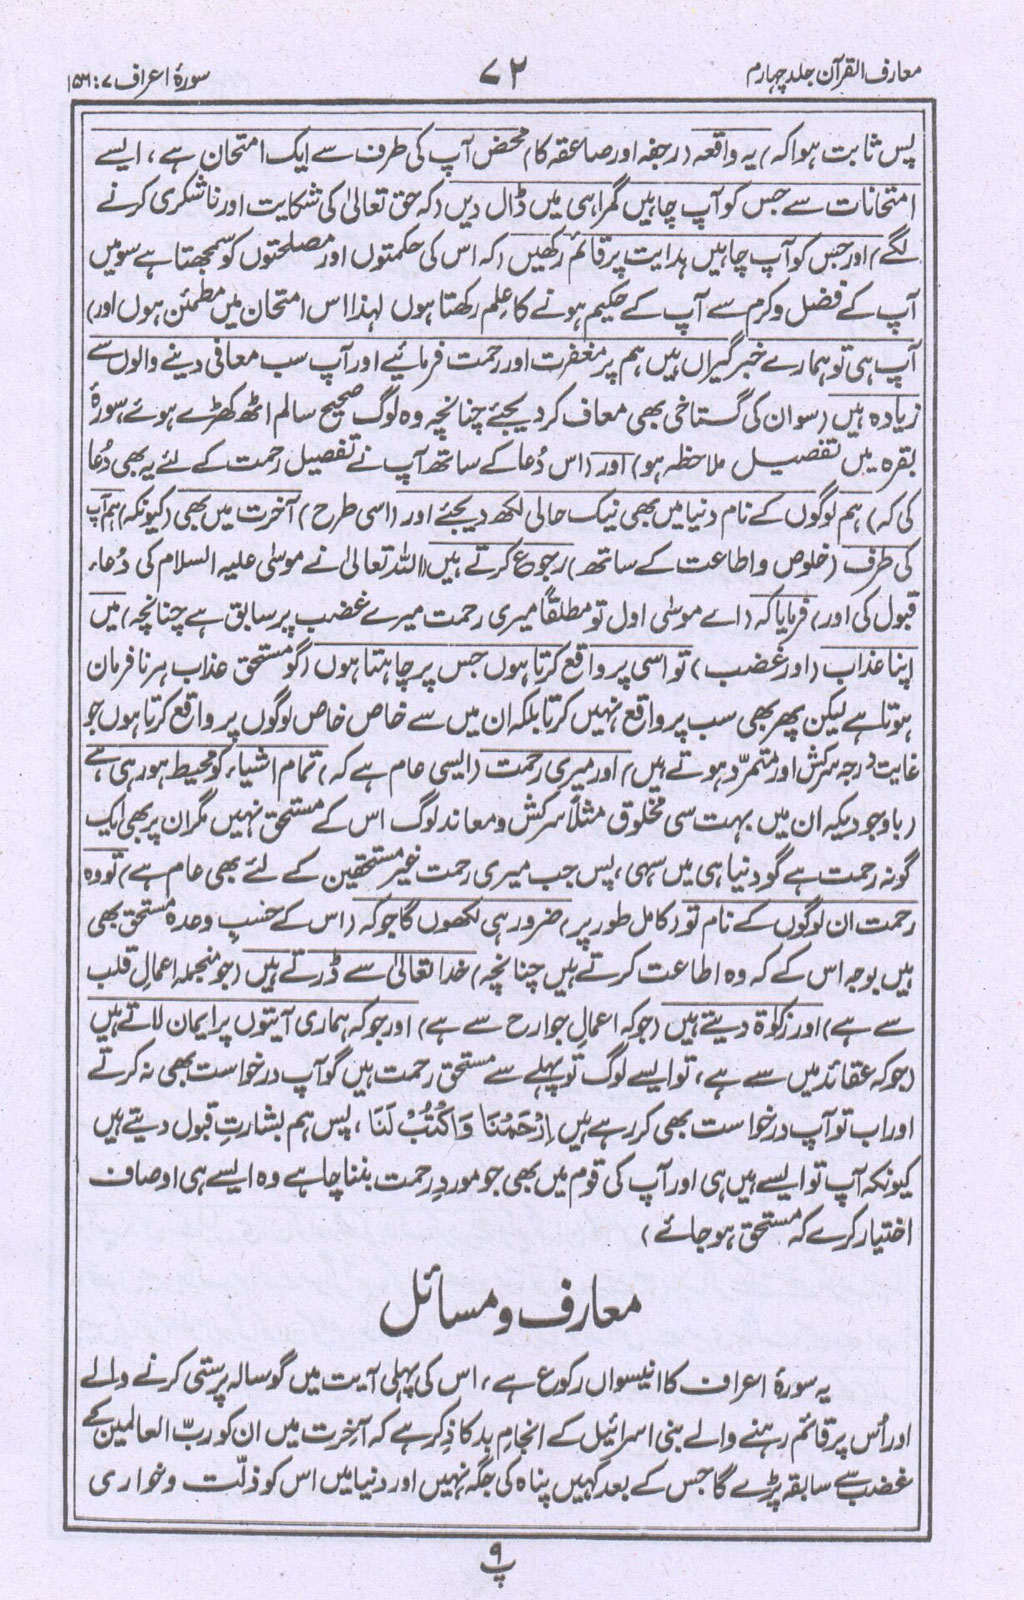 معارف القرآن جلد چہارم
۷۲
سورۂ اعراف ۷ : ۱۵۶
پس ثابت ہوا کہ) یہ واقعہ (رجفہ اور صاعقہ کا) محض آپ کی طرف سے ایک امتحان ہے، ایسے
امتحانات سے جس کو آپ چاہیں گمراہی میں ڈال دیں (کہ حق تعالیٰ کی شکایت اور ناشکری کرنے
لگے) اور جس کو آپ چاہیں ہدایت پر قائم رکھیں (کہ اس کی حکمتوں اور مصلحتوں کو سمجھتا ہے سو میں
آپ کے فضل و کرم سے آپ کے حکیم ہونے کا علم رکھتا ہوں لہٰذا اس امتحان میں مطمئن ہوں اور)
آپ ہی تو ہمارے خبر گیراں ہیں ہم پر مغفرت اور رحمت فرمائیے اور آپ سب معافی دینے والوں سے
زیادہ ہیں (سو ان کی گستاخی بھی معاف کر دیجئے چنانچہ وہ لوگ صحیح سالم اٹھ کھڑے ہوئے سورۂ
بقرہ میں تفصیل ملاحظہ ہو) اور (اس دُعا کے ساتھ آپ نے تفصیل رحمت کے لئے یہ بھی دُعا
کی کہ) ہم لوگوں کے نام دنیا میں بھی نیک حالی لکھ دیجئے اور (اسی طرح) آخرت میں بھی (کیونکہ) ہم آپ
کی طرف (خلوص و اطاعت کے ساتھ) رجوع کرتے ہیں (اللہ تعالیٰ نے موسٰی علیہ السلام کی دُعاء
قبول کی اور) فرمایا کہ (اے موسٰی اول تو مطلقاً میری رحمت میرے غضب پر سابق ہے چنانچہ) میں
اپنا عذاب (اور غضب) تو اسی پر واقع کرتا ہوں جس پر چاہتا ہوں (گو مستحق عذاب ہر نافرمان
ہوتا ہے لیکن پھر بھی سب پر واقع نہیں کرتا بلکہ ان میں سے خاص خاص لوگوں پر واقع کرتا ہوں جو
غایت درجہ سرکش اور متمرّد ہوتے ہیں) اور میری رحمت (ایسی عام ہے کہ) تمام اشیاء کو محیط ہو رہی ہے
(باوجودیکہ ان میں بہت سی مخلوق مثلاً سرکش و معاند لوگ اس کے مستحق نہیں مگر ان پر بھی ایک
گونہ رحمت ہے گو دنیا ہی میں سہی، پس جب میری رحمت غیر مستحقین کے لئے بھی عام ہے) تو وہ
رحمت ان لوگوں کے نام تو (کامل طور پر) ضرور ہی لکھوں گا جو کہ (اس کے حسبِ وعدہ مستحق بھی
ہیں بوجہ اس کے کہ وہ اطاعت کرتے ہیں چنانچہ) خدا تعالیٰ سے ڈرتے ہیں (جو منجملہ اعمالِ قلب
سے ہے) اور زکوٰۃ دیتے ہیں (جو کہ اعمالِ جوارح سے ہے) اور جو کہ ہماری آیتوں پر ایمان لاتے ہیں
(جو کہ عقائد میں سے ہے، تو ایسے لوگ تو پہلے سے مستحق رحمت ہیں گو آپ درخواست بھی نہ کرتے
اور اب تو آپ درخواست بھی کر رہے ہیں اِرْحَمْنَا وَاكْتُبْ لَنَا ، پس ہم بشارتِ قبول دیتے ہیں
کیونکہ آپ تو ایسے ہیں ہی اور آپ کی قوم میں بھی جو موردِ رحمت بننا چاہے وہ ایسے ہی اوصاف
اختیار کرے کہ مستحق ہو جائے)
معارف و مسائل
یہ سورۂ اعراف کا انیسواں رکوع ہے، اس کی پہلی آیت میں گوسالہ پرستی کرنے والے
اور اُس پر قائم رہنے والے بنی اسرائیل کے انجام بد کا ذِکر ہے کہ آخرت میں ان کو ربّ العالمین کے
غضب سے سابقہ پڑے گا جس کے بعد کہیں پناہ کی جگہ نہیں اور دنیا میں اس کو ذلّت و خواری
پ ۹